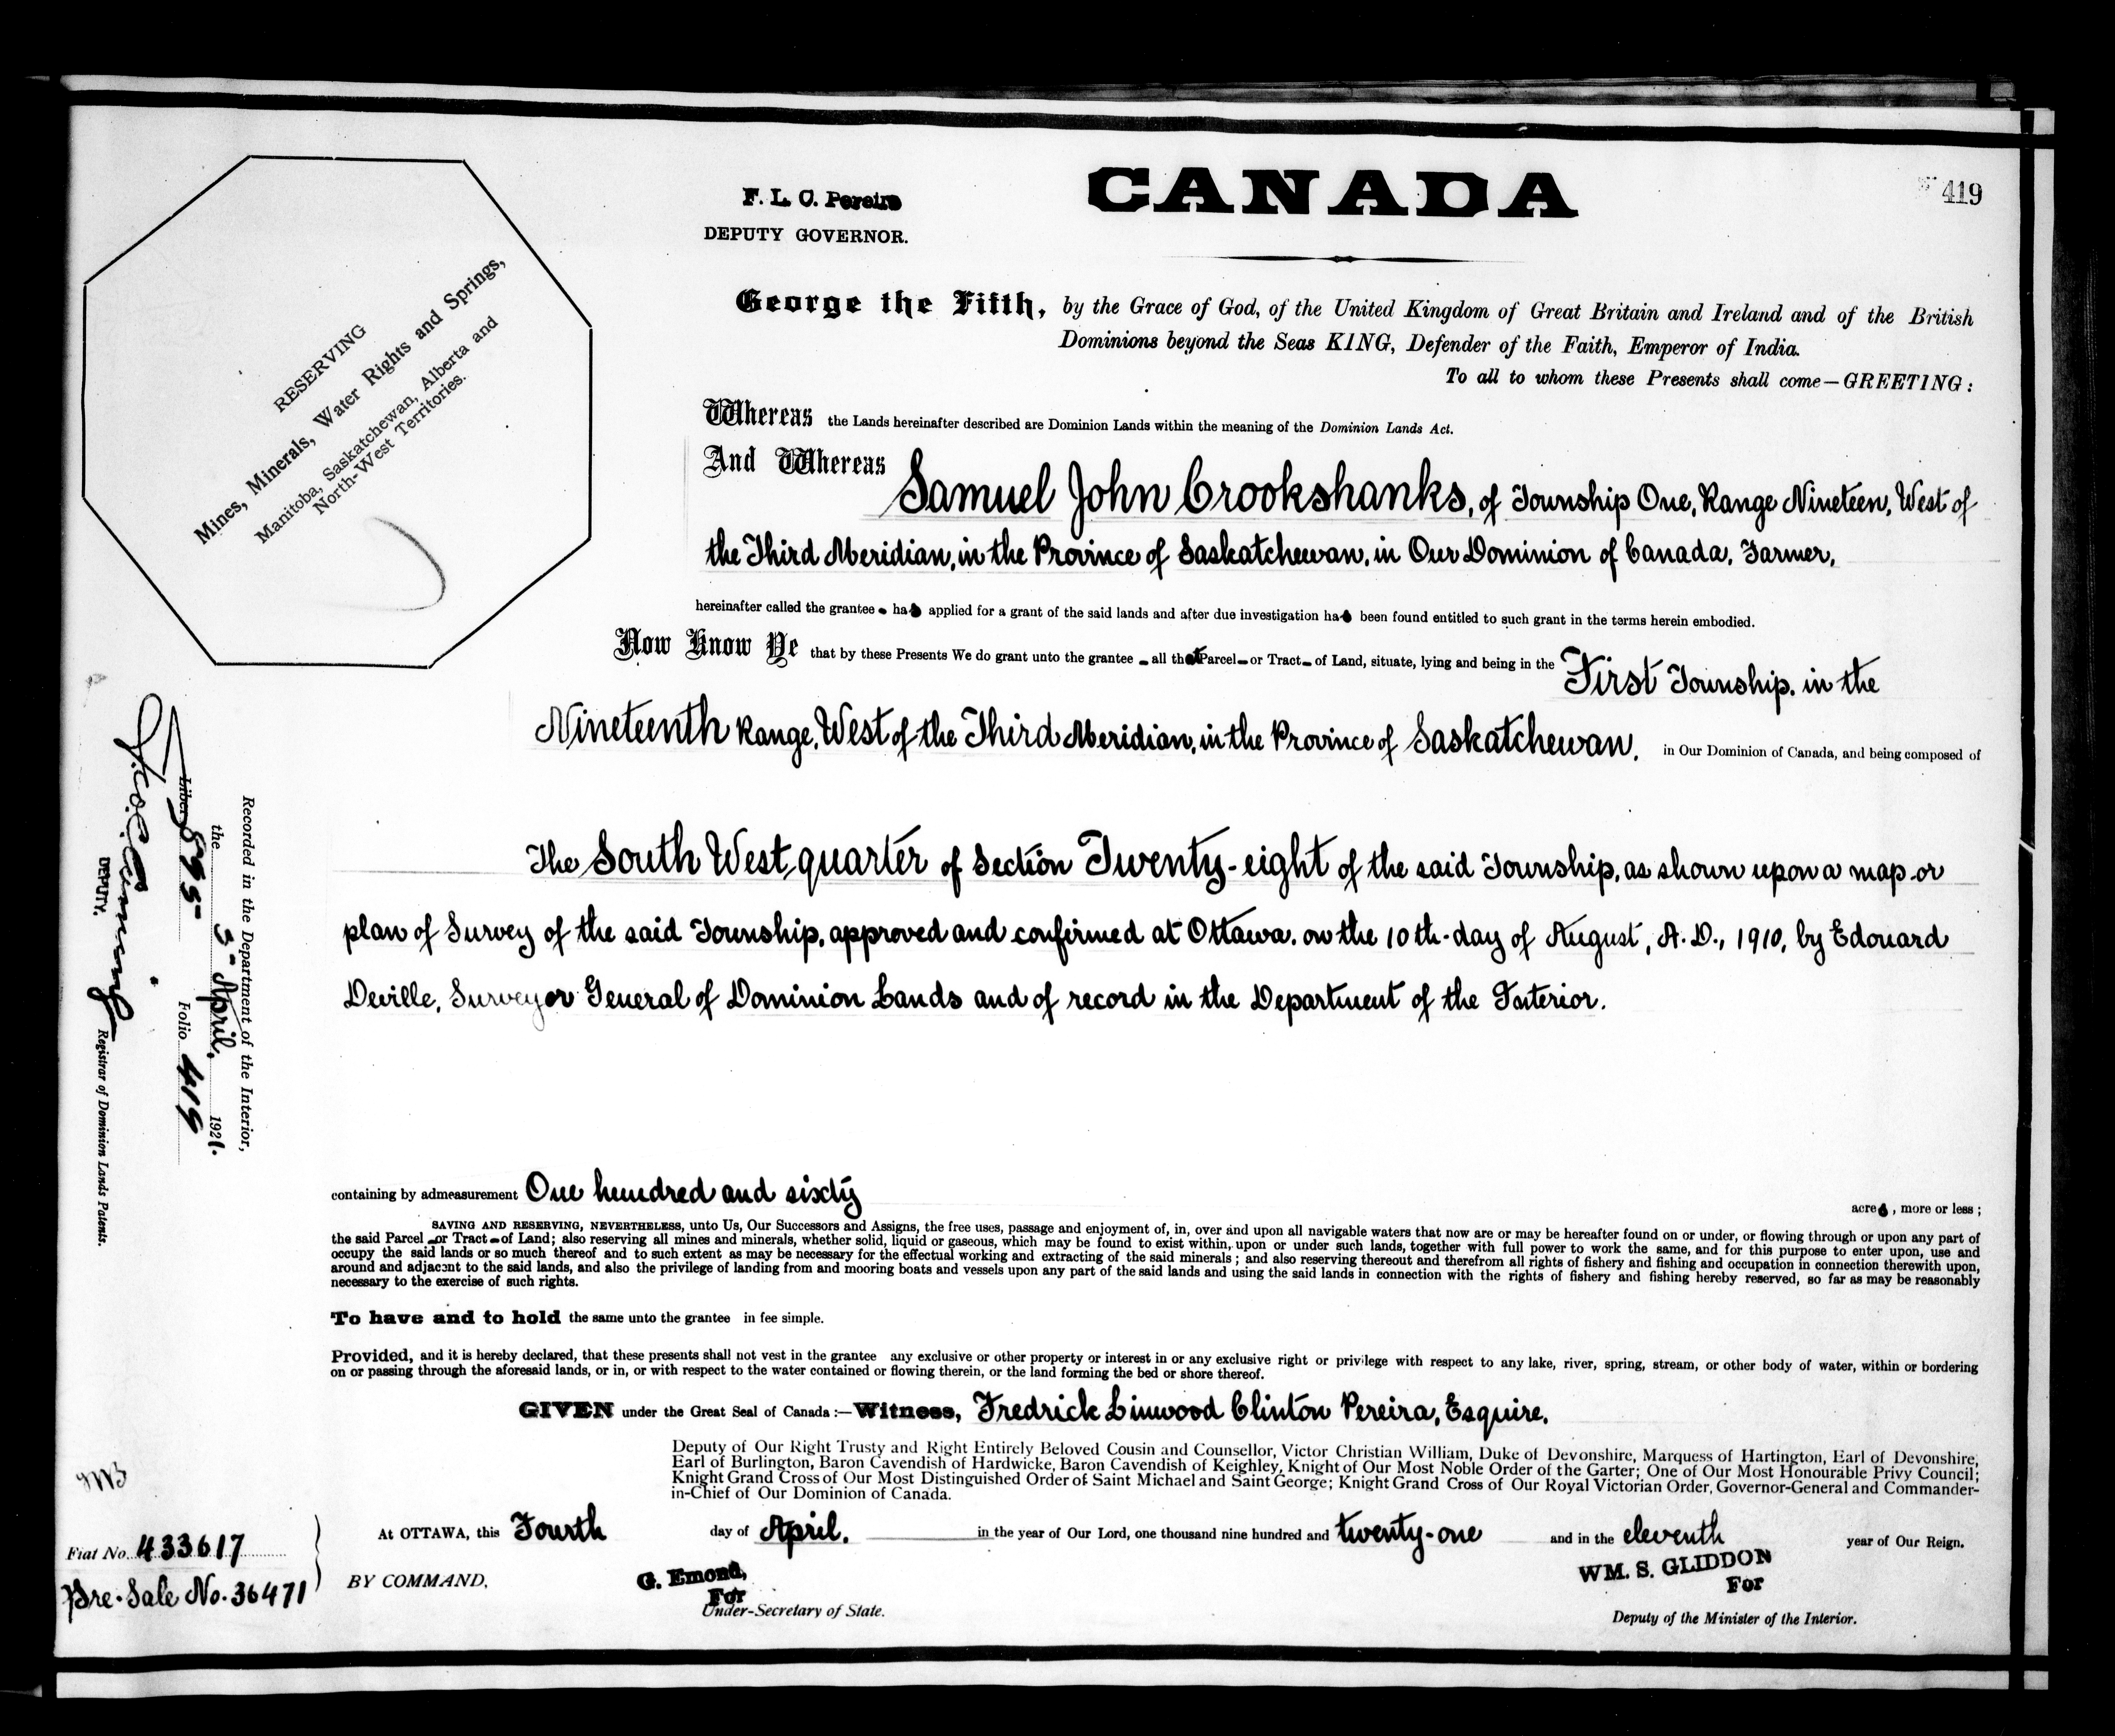 F. L. C. Pereira
DEPUTY GOVERNOR.
CANADA
419
RESERVING
Mines, Minerals, Water Rights and Springs,
Manitoba, Saskatchewan, Alberta and
North-West Territories.
George the Fifth, by the Grace of God, of the United Kingdom of Great Britain and Ireland and of the British
Dominions beyond the Seas KING, Defender of the Faith, Emperor of India.
To all to whom these Presents shall come—GREETING:
Whereas the Lands hereinafter described are Dominion Lands within the meaning of the Dominion Lands Act.
And Whereas Samuel John Crookshanks, of Township One, Range Nineteen, West of
the Third Meridian, in the Province of Saskatchewan, in Our Dominion of Canada, Farmer,
hereinafter called the grantee has applied for a grant of the said lands and after due investigation has been found entitled to such grant in the terms herein embodied.
Now Know Ye that by these Presents We do grant unto the grantee all that Parcel or Tract of Land, situate, lying and being in the First Township, in the
Nineteenth Range, West of the Third Meridian, in the Province of Saskatchewan, in Our Dominion of Canada, and being composed of
The South West quarter of Section Twenty-eight of the said Township, as shown upon a map or
plan of Survey of the said Township, approved and confirmed at Ottawa, on the 10th day of August, A.D., 1910, by Edouard
Deville, Surveyor General of Dominion Lands and of record in the Department of the Interior.
Recorded in the Department of the Interior,
the 5" April, 1921.
Liber 895 Folio 419
DEPUTY. Registrar of Dominion Lands Patents.
containing by admeasurement One hundred and sixty acres, more or less;
SAVING AND RESERVING, NEVERTHELESS, unto Us, Our Successors and Assigns, the free uses, passage and enjoyment of, in, over and upon all navigable waters that now are or may be hereafter found on or under, or flowing through or upon any part of
the said Parcel or Tract of Land; also reserving all mines and minerals, whether solid, liquid or gaseous, which may be found to exist within, upon or under such lands, together with full power to work the same, and for this purpose to enter upon, use and
occupy the said lands or so much thereof and to such extent as may be necessary for the effectual working and extracting of the said minerals; and also reserving thereout and therefrom all rights of fishery and fishing and occupation in connection therewith upon,
around and adjacent to the said lands, and also the privilege of landing from and mooring boats and vessels upon any part of the said lands and using the said lands in connection with the rights of fishery and fishing hereby reserved, so far as may be reasonably
necessary to the exercise of such rights.
To have and to hold the same unto the grantee in fee simple.
Provided, and it is hereby declared, that these presents shall not vest in the grantee any exclusive or other property or interest in or any exclusive right or privilege with respect to any lake, river, spring, stream, or other body of water, within or bordering
on or passing through the aforesaid lands, or in, or with respect to the water contained or flowing therein, or the land forming the bed or shore thereof.
GIVEN under the Great Seal of Canada:—Witness, Fredrick Linwood Clinton Pereira, Esquire,
Deputy of Our Right Trusty and Right Entirely Beloved Cousin and Counsellor, Victor Christian William, Duke of Devonshire, Marquess of Hartington, Earl of Devonshire,
Earl of Burlington, Baron Cavendish of Hardwicke, Baron Cavendish of Keighley, Knight of Our Most Noble Order of the Garter; One of Our Most Honourable Privy Council;
Knight Grand Cross of Our Most Distinguished Order of Saint Michael and Saint George; Knight Grand Cross of Our Royal Victorian Order, Governor-General and Commander-
in-Chief of Our Dominion of Canada.
At OTTAWA, this Fourth day of April, in the year of Our Lord, one thousand nine hundred and twenty-one and in the eleventh year of Our Reign.
Fiat No. 433617
Pre-Sale No. 36471
BY COMMAND,
G. Emond,
For
Under-Secretary of State.
WM. S. GLIDDON
For
Deputy of the Minister of the Interior.